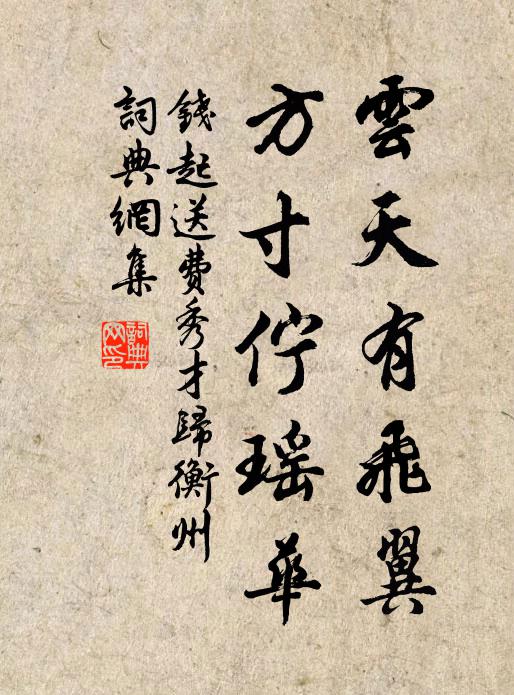 雲天有飛翼
方寸佇瑤華
錢起送費秀才歸衡州
詞典網集
詞典網印